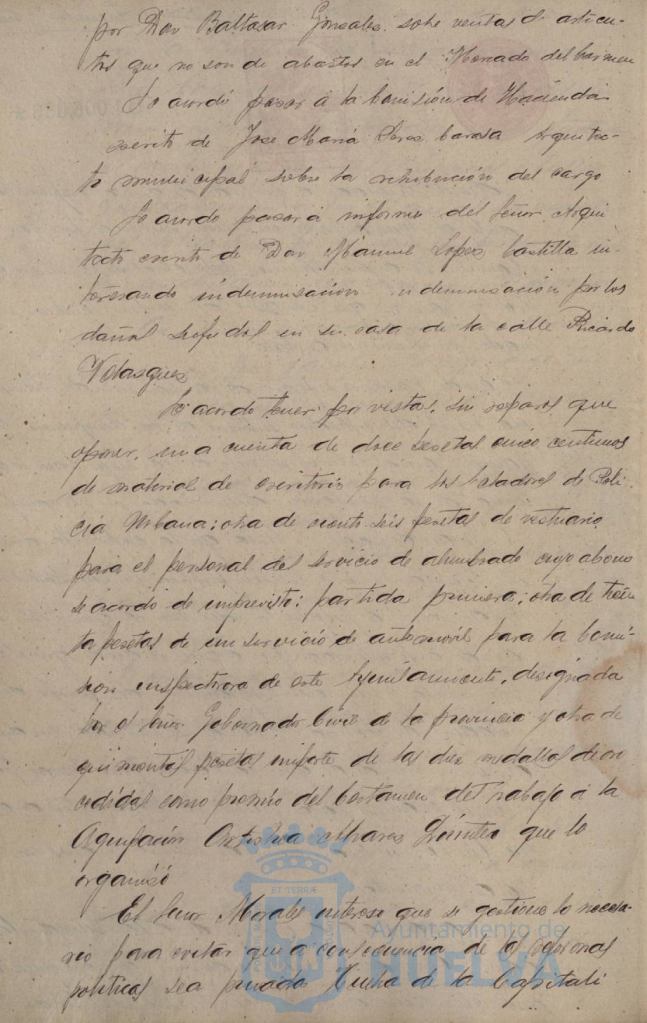 por Don Baltasar Gonzalez sobre ventas de articu-
los que no son de abastos en el Mercado del Carmen
Se acordó pasar á la Comisión de Hacienda
escrito de Jose Maria Perez Carasa Arquitec-
to municipal sobre la retribución del cargo
Se acordo pasar á informe del Señor Arqui
tecto escrito de Don Manuel Lopez Castilla in-
teresando indemnisacion indemnisación por los
daños sufridos en su casa de la calle Ricardo
Velasquez
Se acordo tener por vistas, sin reparos que
oponer, una cuenta de doce pesetas cinco centimos
de material de escritorio para los Celadores de Poli-
cia Urbana; otra de ciento seis pesetas de vestuario
para el personal del servicio de alumbrado cuyo abono
se acordo de imprevistos; partida primera; otra de trein
ta pesetas de un servicio de automóvil para la Comi-
sion inspectora de este Ayuntamiento, designada
por el señor Gobernador Civil de la provincia y otra de
quinientas pesetas importe de las diez medallas con
cedidas como premio del Certamen del Trabajo á la
Agrupación Artistica Alvarez Quintero que lo
organizó
El Señor Morales intereso que se gestione lo necesa-
rio para evitar que á consecuencia de las reformas
politicas sea privada Huelva de la Capitali
ET TERRÆ
Ayuntamiento de
HUELVA